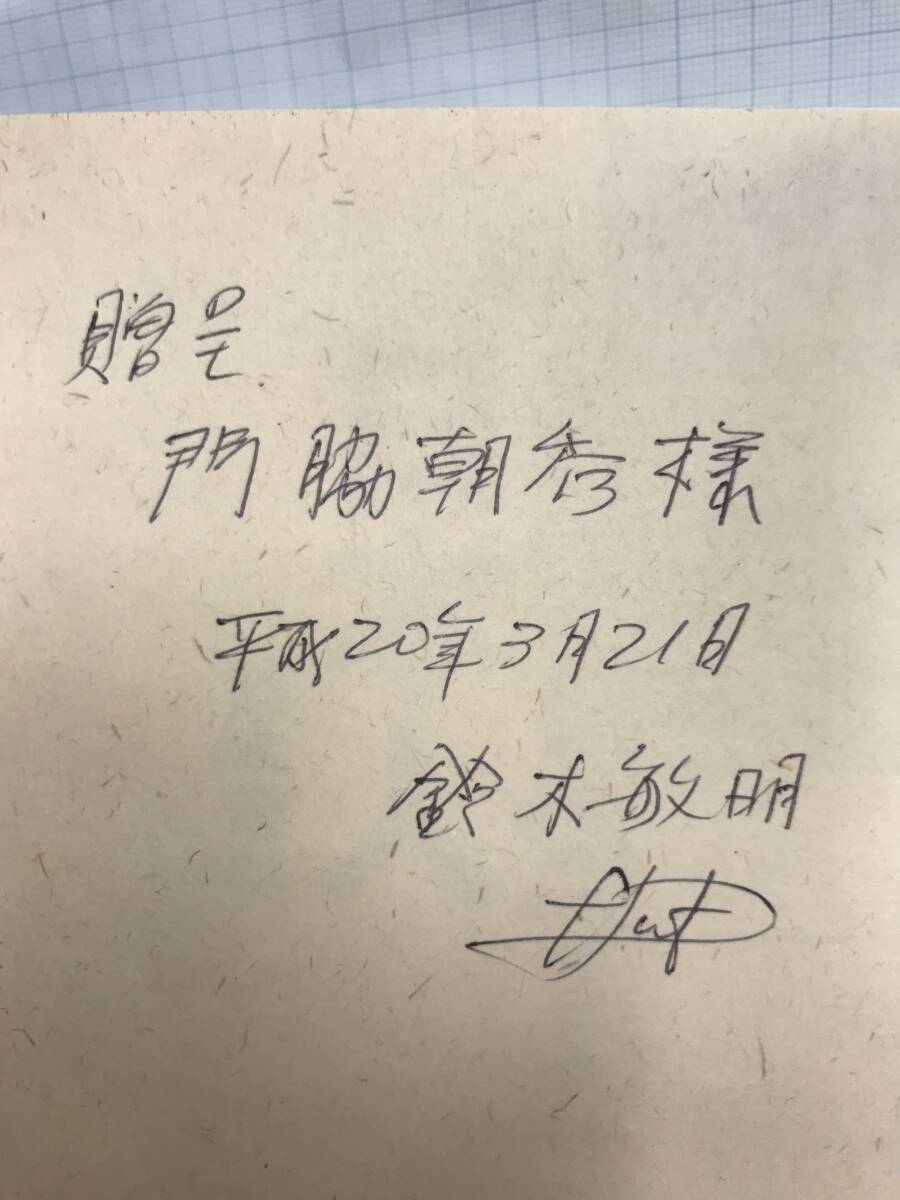 贈呈
門脇朝秀様
平成20年3月21日
鈴木敏明